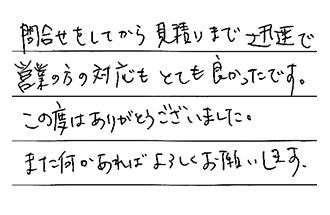 問合せをしてから見積りまで迅速で
営業の方の対応もとても良かったです。
この度はありがとうございました。
また何かあればよろしくお願いします.